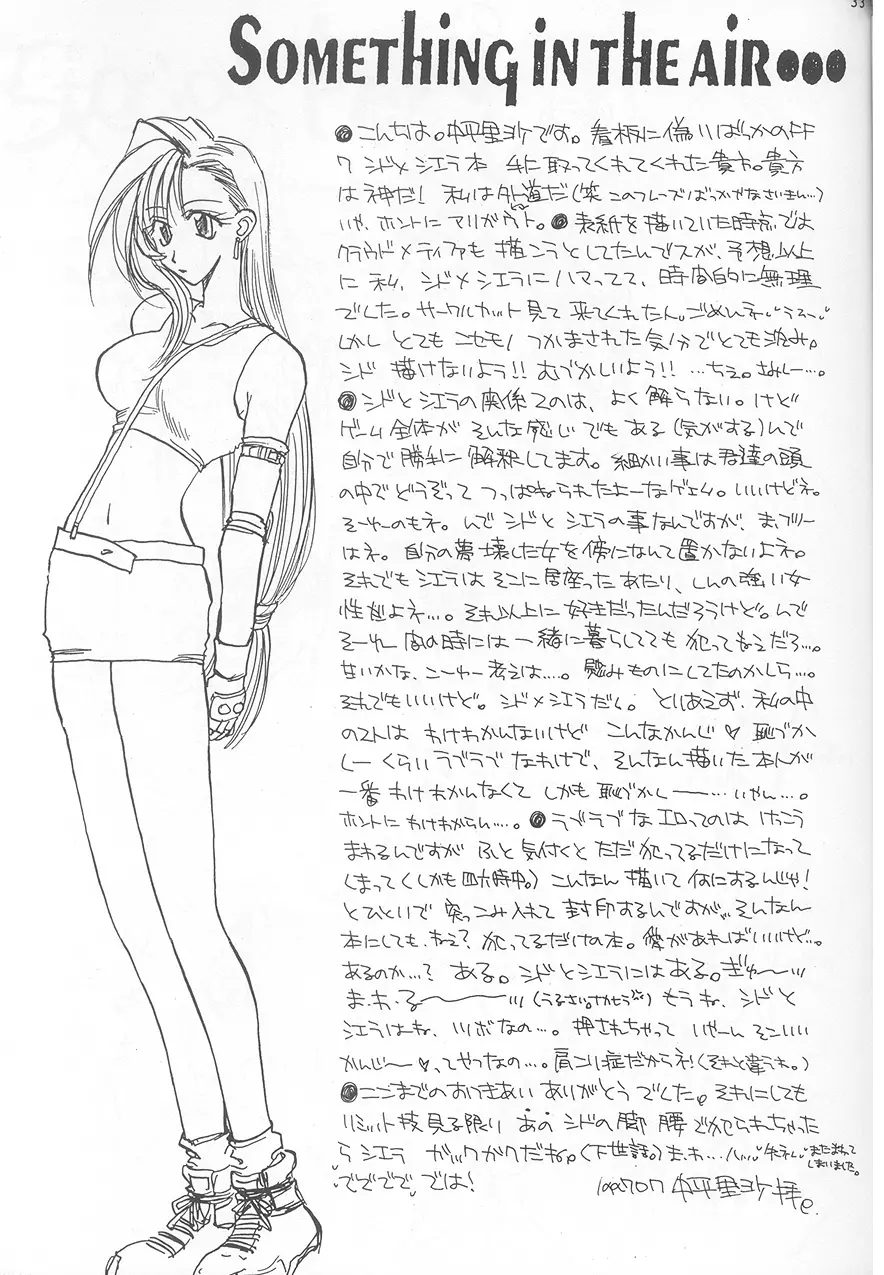 33
SOMETHING IN THE AIR•••
●こんちは。中平里沙です。看板に偽りばっかのFF
7 シド×シエラ本 手に取ってくれてくれた貴方。貴方
は神だ! 私は外道だ(笑 このフレーズばっかやなさいまん…)
いや、ホントに アリガウト。●表紙を描いていた時点では
クラウド×ティファも 描こうとしてたんでスが、予想以上
に 私、シド×シエラに ハマってて、時間的に無理
でした。サークルカット見て 来てくれたん。ごめんネ
しかし とても ニセモノ つかまされた気分でとても
シド 描けないよう!! むづかしいよう!! …ちえ。さみしー…。
●シドとシエラの関係つのは、よく 解らない。けど
ゲーム全体が そんな感じ でもある(気がする)んで
自分で勝手に解釈してます。細かい事は君達の頭
の中でどうぞって つっぱねられたよーなゲェム。いいけどネ。
そーゆのもネ。んで シドと シエラの事なんですが、
はネ。自分の夢壊した女を傍になんて置かないよネ。
それでも シエラは そこに居座ったあたり、しんの強い女
性だよネ…。それ以上に 好きだったんだろうけど。んで
そーゆー 間の時には 一緒に暮らしてても 犯ってもえだろ…。
甘いかな、こーゆー考えは…。慰みものにしてたのかしら…。
それでもいいけど。シド×シエラだし。とりあえず、私の中
の2人は わけわかんないけど こんなかんじ♡ 恥づか
しー くらいラブラブ なわけで、そんなん描いた本人が
一番 わけわかんなくて しかも 恥づかしー……いやん…。
ホントに わけわからん…。●ラブラブな エロってのは けっこう
まわるんですが ふと気付くと ただ 犯ってるだけになって
しまって(しかも四六時中。)こんなん 描いて 何にするんじゃ!
とひといで 突っこみ入れて 封印するんですが、そんなん
本にしても、ねェ? 犯ってるだけの本。愛があればいいけど…。
あるのか…? ある。シドとシエラにはある。ぎゅ〜
ま・わ・る〜 (うるさい) もうね、シドと
シエラはね、ツボなの…。押されちゃって いやーん そこいい
かんじ〜♥ってやつなの…。肩こり症だからネ!(それと違うわ。)
●ここまでのおつきあい ありがとう でした。それにしても
リミット技見る限り あの シドの 脚 腰 でかせられちゃった
ら シエラ ガックガクだね。(下世話。)まわ… またまわって しまいました。
でででで では!
中平里沙 拝